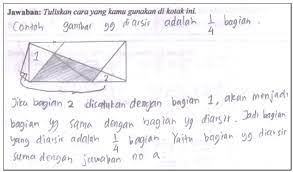 Jawaban: Tuliskan cara yang kamu gunakan di kotak ini.
Contoh gambar yg diarsir adalah 1/4 bagian.
1
2
Jika bagian 2 disatukan dengan bagian 1, akan menjadi
bagian yg sama dengan bagian yg diarsir. Jadi bagian
yang diarsir adalah 1/4 bagian. Yaitu bagian yg diarsir
sama dengan jawaban no a.